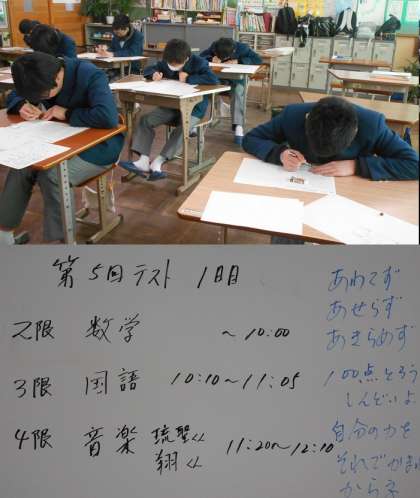 第5回テスト 1日目
2限 数学 ～10:00
3限 国語 10:10～11:05
4限 音楽 琉聖くん 翔くん 11:20～12:10
あわてず
あせらず
あきらめず
100点とろう
しんどいよ
自分の力を
それでかま
からネ